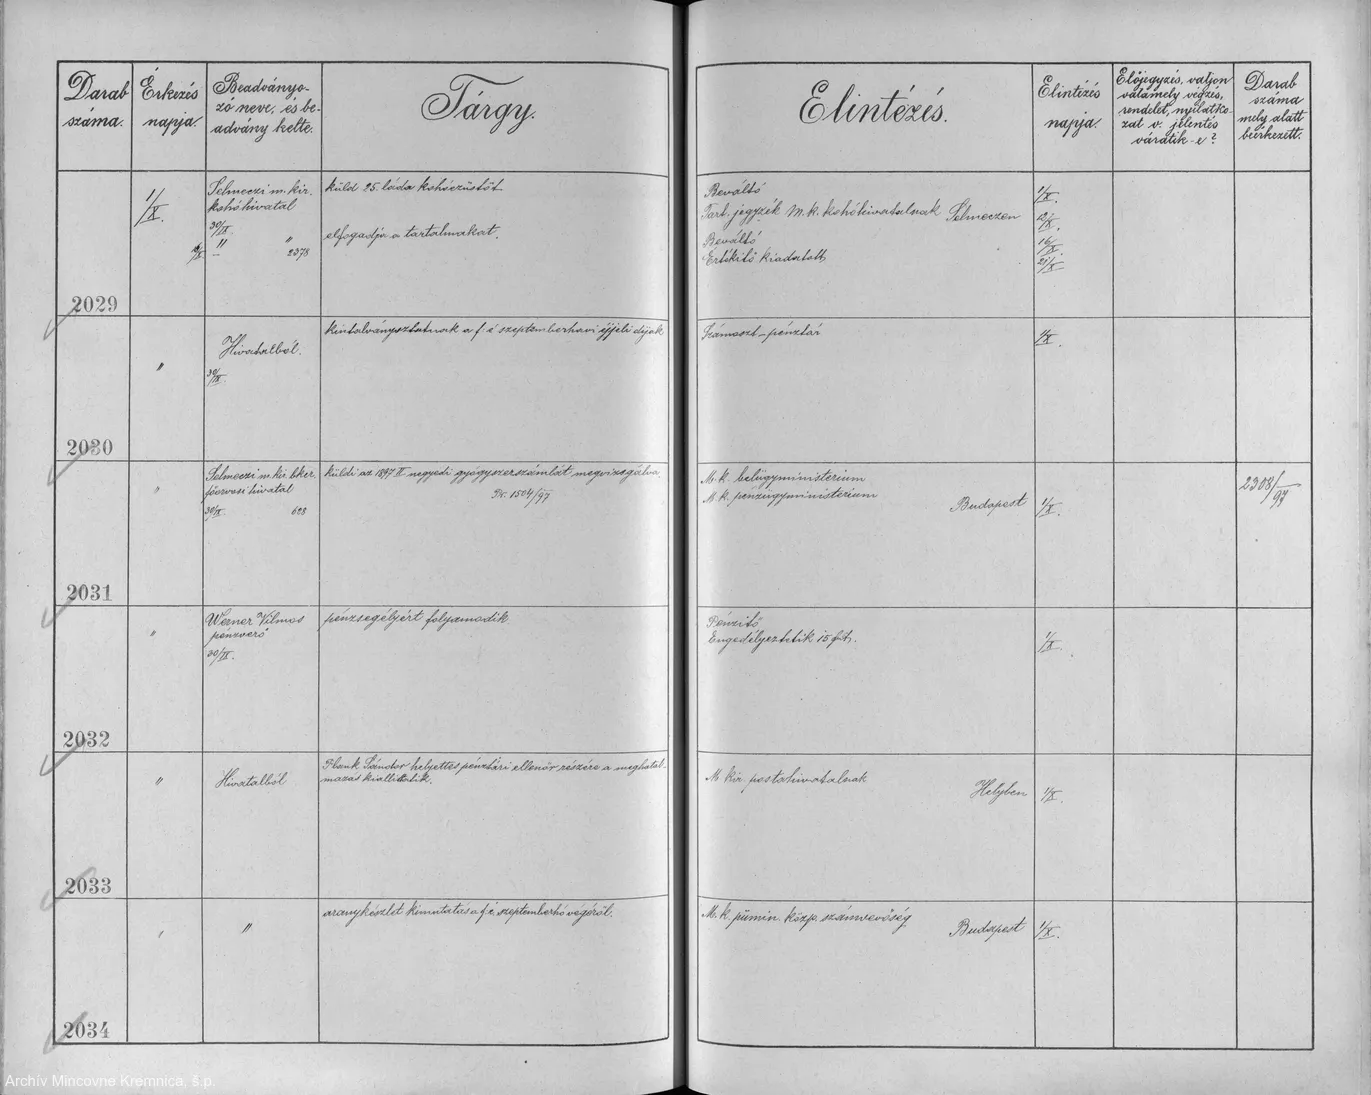 Darab száma.
Érkezés napja.
Beadványo-
zó neve, és be-
advány kelte.
Tárgy.
Elintézés.
Elintézés napja.
Előjegyzés, valjon
valamely végzés,
rendelet, nyilatko-
zat v. jelentés
váratik-e?
Darab
száma
mely alatt
beérkezett.
1/X.
Selmeczi m. kir.
kohóhivatal
30/IX.
" " 2378
küld 25 láda kohóezüstöt
elfogadja a tartalmakat.
Beváltó
Tart. jegyzék M. k. kohóhivatalnak Selmeczen
Beváltó
Értékítő kiadatott
1/X.
12/X.
16/X
21/X
2029
"
Hivatalból.
30/IX.
kiutalványoztatnak a f. é szeptemberhavi éjjeli dijak
Számoszt-pénztár
1/X.
2030
"
Selmeczi m. kir. bker.
főorvosi hivatal
30/IX. 628
küldi az 1897 II negyedi gyógyszerszámlát megvizsgálva.
Nr. 1504/97
M. k. belügyministerium
M. k. penzügyministerium
Budapest
1/X.
2308/97
2031
"
Werner Vilmos
pénzverő
30/IX.
pénzsegélyért folyamodik
Pénzítő
Engedélyeztetik 15 frt.
1/X.
2032
"
Hivatalból
Plank Sándor helyettes pénztári ellenőr részére a meghatal-
mazás kiallíttatik.
M. kir. postahivatalnak
Helyben
1/X.
2033
"
"
aranykészlet kimutatás a f. é. szeptemberhó végéről.
M. k. pümin. közp. számvevőség
Budapest
1/X.
2034
Archív Mincovne Kremnica, š.p.